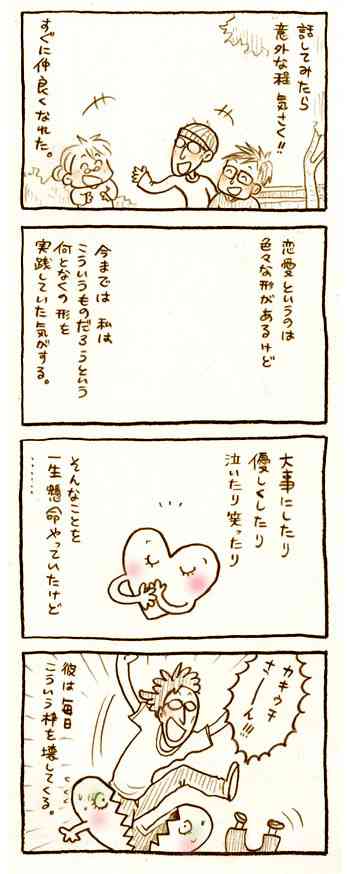 話してみたら
意外な程 気さく!!
すぐに仲良くなれた。
恋愛というのは
色々な形があるけど
今までは 私は
こういうものだろうという
何となくの形を
実践していた気がする。
大事にしたり
優しくしたり
泣いたり 笑ったり
そんなことを
一生懸命やっていたけど
………
カキウチ
さーん!!!
彼は毎日
こういう枠を壊してくる。